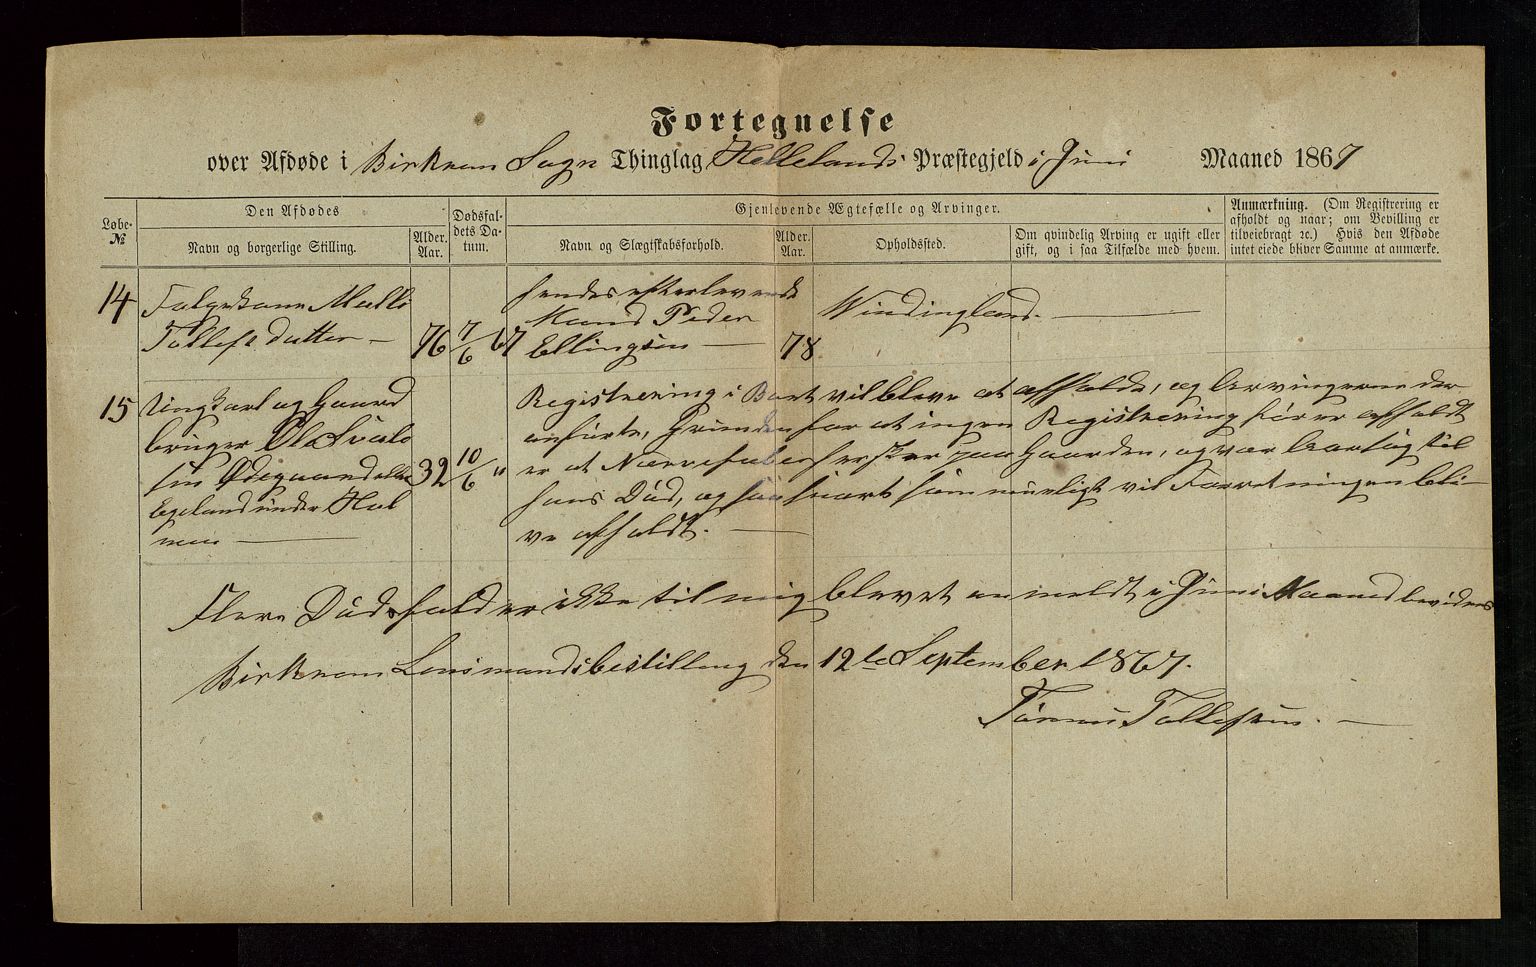 Fortegnelse
over Afdøde i Birkrem Sogn Thinglag Hellelands Præstegjeld i Juni Maaned 1867
Løbe-
№
Den Afdødes
Navn og borgerlige Stilling.
Alder.
Aar.
Dødsfal-
dets Da-
tum.
Gjenlevende Ægtefælle og Arvinger.
Navn og Slægtskabsforhold.
Alder.
Aar.
Opholdssted.
Om qvindelig Arving er ugift eller
gift, og i saa Tilfælde med hvem.
Anmærkning. (Om Registrering er
afholdt og naar; om Bevilling er
tilveiebragt ꝛc.) Hvis den Afdøde
intet eiede bliver Samme at anmærke.
14 Folgekone Malli
Tollefsdatter — 76 7/6 67
hendes efterlevende
Mand Peder
Ellingsen — 78
Vindingland. —
15 Ungkarl og Gaard
bruger Ole Sivals
sen Ødegaard eller
Egeland under Hol
men — 32 10/6 "
Registrering i Boet vil blive at afholde, og Arvingerne der
anførte, Grunden for at ingen Registrering før er afholdt
er at Nærvefeber hersker paa Gaarden, og var Aarsag til
hans Død, og saa snart som mueligt vil Forretningen bli-
ve afholdt. —
Flere Dødsfald er ikke til mig blevet anmeldt i Juni Maaned bevidnes
Birkrem Lensmandsbestilling den 12te September 1867.
Tønnes Tollefsen. —